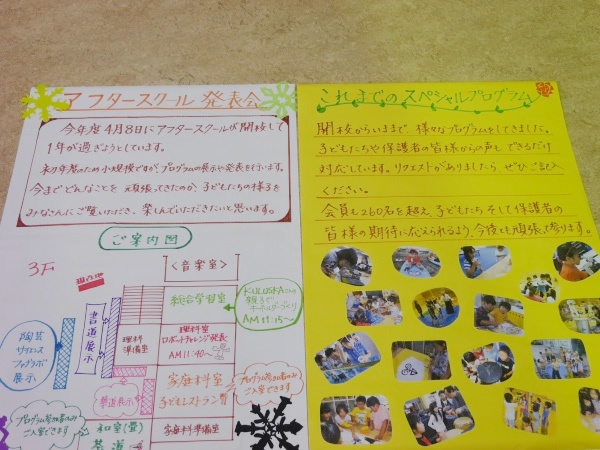 アフタースクール 発表会
今年度4月8日にアフタースクールが開校して
1年が過ぎようとしています。
初年度のため小規模ですが、プログラムの展示や発表を行います。
今までどんなことを 頑張ってきたのか、子どもたちの様子を
みなさんにご覧いただき、楽しんでいただきたいと思います。
ご案内図
3F
現在地
<音楽室>
総合学習室
KULUSKAさんの
AM11:15〜
書道展示
理科
準備室
理科室
ロボットチャレンジ発表
AM11:40〜
陶芸
サイエンス
ファブラボ
展示
華道展示
家庭科室
子どもレストラン
プログラム参加者のみ
ご入室できます
プログラム参加者のみ
ご入室できます
和室(畳)
茶道
家庭科準備室
これまでの スペシャルプログラム
開校からいままで 様々なプログラムをしてきました。
子どもたちや保護者の皆様からの声も できるだけ
対応しています。リクエストがありましたら ぜひご記入
ください。
会員も260名を超え 子どもたち そして保護者の
皆様の期待に応えられるよう、今後とも頑張って参ります。